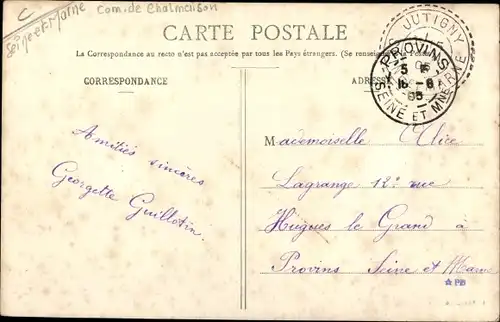 C
Seine et Marne
Com. de Chalmaison
CARTE POSTALE
La Correspondance au recto n'est pas acceptée par tous les Pays étrangers. (Se renseigner à la Poste)
CORRESPONDANCE
ADRESSE
JUTIGNY
PROVINS
5 E
16-8
05
SEINE ET MNE
Amitiés sincères
Georgette Guillotin.
Mademoiselle Alice
Lagrange 12: rue
Hugues le Grand à
Provins Seine et Marne
PB